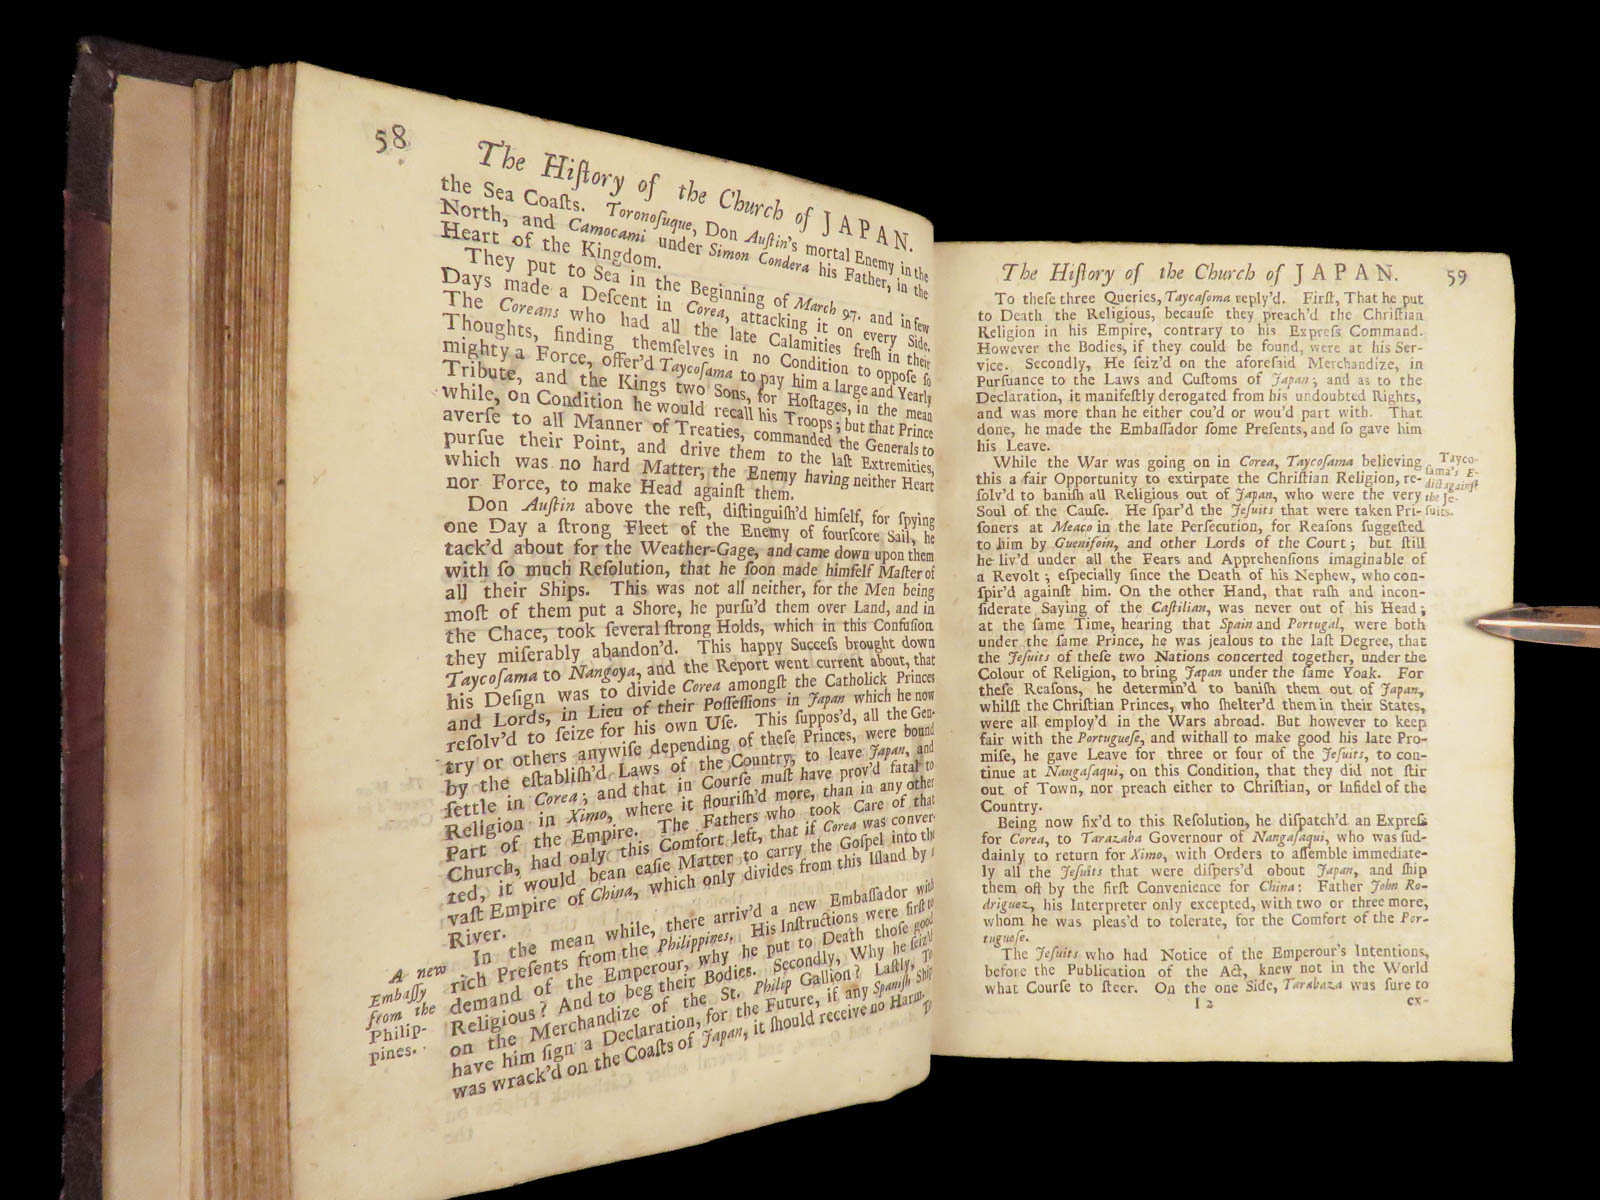 58
The Hiſtory of the Church of JAPAN.
the Sea Coaſts. Toronoſuque, Don Auſtin's mortal Enemy in the
North, and Camocami under Simon Condera his Father, in the
Heart of the Kingdom.
They put to Sea in the Beginning of March 97. and in few
Days made a Deſcent in Corea, attacking it on every Side.
The Coreans who had all the late Calamities freſh in their
Thoughts, finding themſelves in no Condition to oppoſe ſo
mighty a Force, offer'd Taycoſama to pay him a large and Yearly
Tribute, and the Kings two Sons, for Hoſtages, in the mean
while, on Condition he would recall his Troops; but that Prince
averſe to all Manner of Treaties, commanded the Generals to
purſue their Point, and drive them to the laſt Extremities,
which was no hard Matter, the Enemy having neither Heart
nor Force, to make Head againſt them.
Don Auſtin above the reſt, diſtinguiſh'd himſelf, for ſpying
one Day a ſtrong Fleet of the Enemy of fourſcore Sail, he
tack'd about for the Weather-Gage, and came down upon them
with ſo much Reſolution, that he ſoon made himſelf Maſter of
all their Ships. This was not all neither, for the Men being
moſt of them put a Shore, he purſu'd them over Land, and in
the Chace, took ſeveral ſtrong Holds, which in this Confuſion
they miſerably abandon'd. This happy Succeſs brought down
Taycoſama to Nangoya, and the Report went current about, that
his Deſign was to divide Corea amongſt the Catholick Princes
and Lords, in Lieu of their Poſſeſſions in Japan which he now
reſolv'd to ſeize for his own Uſe. This ſuppos'd, all the Gen-
try or others anywiſe depending of theſe Princes, were bound
by the eſtabliſh'd Laws of the Country, to leave Japan, and
ſettle in Corea; and that in Courſe muſt have prov'd fatal to
Religion in Ximo, where it flouriſh'd more, than in any other
Part of the Empire. The Fathers who took Care of that
Church, had only this Comfort left, that if Corea was conver-
ted, it would bean eaſie Matter to carry the Goſpel into the
vaſt Empire of China, which only divides from this Iſland by a
River.
In the mean while, there arriv'd a new Embaſſador with
rich Preſents from the Philippines. His Inſtructions were firſt to
demand of the Emperour, why he put to Death thoſe good
Religious? And to beg their Bodies. Secondly, Why he ſeiz'd
on the Merchandize of the St. Philip Gallion? Laſtly, To
have him ſign a Declaration, for the Future, if any Spaniſh Ship
was wrack'd on the Coaſts of Japan, it ſhould receive no Harm.
To
A new
Embaſſy
from the
Philip-
pines.
The Hiſtory of the Church of JAPAN.
59
To theſe three Queries, Taycaſoma reply'd. Firſt, That he put
to Death the Religious, becauſe they preach'd the Chriſtian
Religion in his Empire, contrary to his Expreſs Command.
However the Bodies, if they could be found, were at his Ser-
vice. Secondly, He ſeiz'd on the aforeſaid Merchandize, in
Purſuance to the Laws and Cuſtoms of Japan; and as to the
Declaration, it manifeſtly derogated from his undoubted Rights,
and was more than he either cou'd or wou'd part with. That
done, he made the Embaſſador ſome Preſents, and ſo gave him
his Leave.
While the War was going on in Corea, Taycoſama believing
this a fair Opportunity to extirpate the Chriſtian Religion, re-
ſolv'd to baniſh all Religious out of Japan, who were the very
Soul of the Cauſe. He ſpar'd the Jeſuits that were taken Pri-
ſoners at Meaco in the late Perſecution, for Reaſons ſuggeſted
to him by Guenifoin, and other Lords of the Court; but ſtill
he liv'd under all the Fears and Apprehenſions imaginable of
a Revolt; eſpecially ſince the Death of his Nephew, who con-
ſpir'd againſt him. On the other Hand, that raſh and incon-
ſiderate Saying of the Caſtilian, was never out of his Head;
at the ſame Time, hearing that Spain and Portugal, were both
under the ſame Prince, he was jealous to the laſt Degree, that
the Jeſuits of theſe two Nations concerted together, under the
Colour of Religion, to bring Japan under the ſame Yoak. For
theſe Reaſons, he determin'd to baniſh them out of Japan,
whilſt the Chriſtian Princes, who ſhelter'd them in their States,
were all employ'd in the Wars abroad. But however to keep
fair with the Portugueſe, and withall to make good his late Pro-
miſe, he gave Leave for three or four of the Jeſuits, to con-
tinue at Nangaſaqui, on this Condition, that they did not ſtir
out of Town, nor preach either to Chriſtian, or Infidel of the
Country.
Being now fix'd to this Reſolution, he diſpatch'd an Expreſs
for Corea, to Tarazaba Governour of Nangaſaqui, who was ſud-
dainly to return for Ximo, with Orders to aſſemble immediate-
ly all the Jeſuits that were diſpers'd obout Japan, and ſhip
them off by the firſt Convenience for China: Father John Ro-
driguez, his Interpreter only excepted, with two or three more,
whom he was pleas'd to tolerate, for the Comfort of the Por-
tugueſe.
The Jeſuits who had Notice of the Emperour's Intentions,
before the Publication of the Act, knew not in the World
what Courſe to ſteer. On the one Side, Tarabaza was ſure to
I 2
ex-
Tayco-
ſama's E-
dict againſt
the Je-
ſuits.